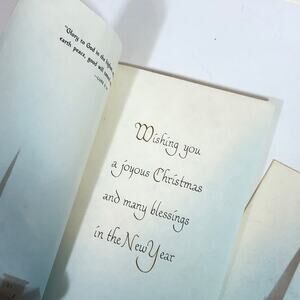 "Glory to God in the highest
earth peace, good will
Wishing you
a joyous Christmas
and many blessings
in the New Year